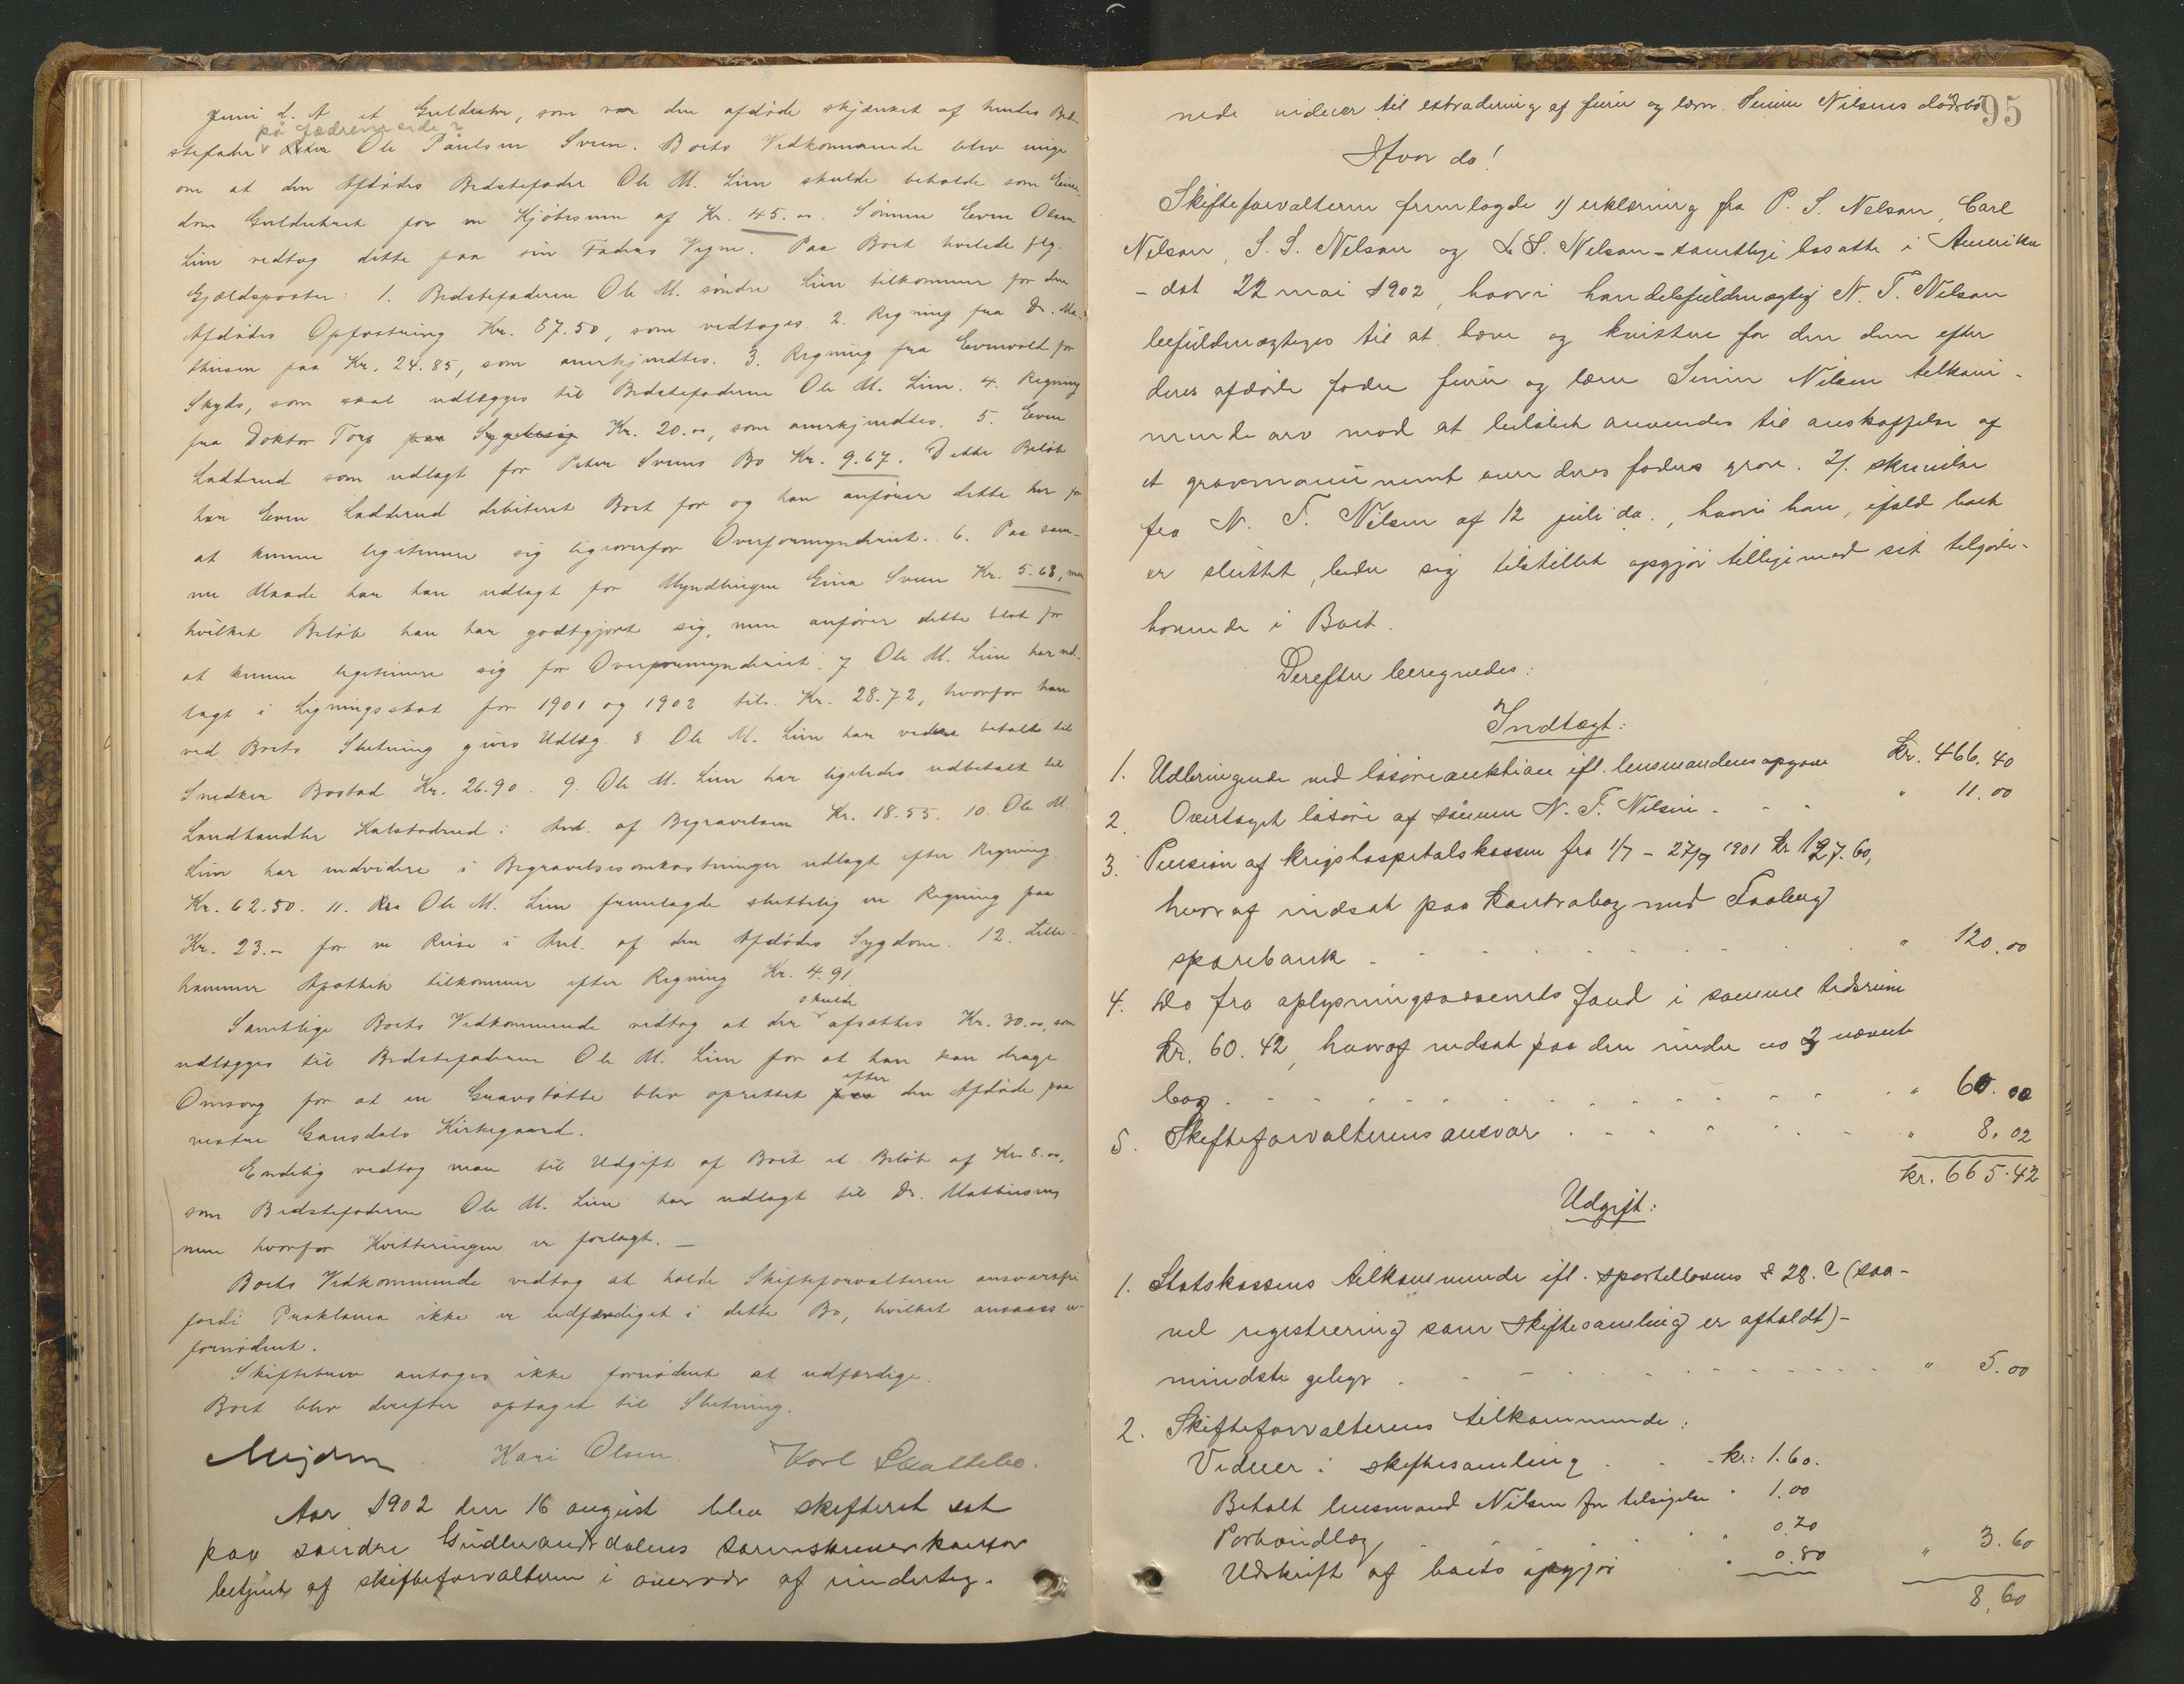 juni d. A et Gulduhr, som var den afdøde skjænket af hendes Bed-
på fædrene side
stefader Ole Paulsen Sveen. Boets Vedkommende blev enige
om at den Afdødes Bedstefader Ole M. Lien skulde beholde som Eien-
dom Gulduhret for en Kjøbesum af Kr. 45.00. Sønnen Even Olsen
Lien vedtog dette paa sin Faders Vegne. Paa Boet hvilede flg.
Gjældsposter: 1. Bedstefaderen Ole M. søndre Lien tilkommer for den
Afdødes Opfostring Kr. 87.50, som vedtoges. 2. Regning fra Dr. Ma-
thiesen paa Kr. 24.85, som anerkjendtes. 3. Regning fra Evenvold for
Skyds, som skal udlægges til Bedstefaderen Ole M. Lien. 4. Regning
fra Doktor Torp paa Sygebesøg Kr. 20.00, som anerkjendtes. 5. Even
Ladderud som udlagt for Peter Sveens Bo Kr. 9.67. Dette Beløb
har Even Ladderud debiteret Boet for og han anfører dette her for
at kunne legitimere sig ligeoverfor Overformynderiet. 6. Paa sam-
me Maade har han udlagt for Myndlingen Gina Sveen Kr. 5.68, men
hvilket Beløb han har godtgjort sig, men anfører dette blot for
at kunne legitimere sig for Overformynderiet. 7 Ole M. Lien har ud-
lagt i Ligningsskat for 1901 og 1902 tils. Kr. 28.72, hvorfor han
ved Boets Slutning gives Udlæg. 8. Ole M. Lien har videre betalt til
Snedker Bostad Kr. 26.90. 9. Ole M. Lien har ligeledes udbetalt til
Landhandler Kalstadrud i And. af Begravelsen Kr. 18.55. 10. Ole M.
Lien har endvidere i Begravelsesomkostninger udlagt efter Regning
Kr. 62.50. 11. Ole M. Lien fremlagde sluttelig en Regning paa
Kr. 23.- for en Reise i Anl. af den Afdødes Sygdom. 12. Lille-
hammer Apothek tilkommer efter Regning Kr. 4.91
skulde
Samtlige Boets Vedkommende vedtog at der afsættes Kr. 30.00, som
udlægges til Bedstefaderen Ole M. Lien for at han kan drage
efter
Omsorg for at en Gravstøtte blev oprettet paa den Afdøde paa
vestre Gausdals Kirkegaard.
Endelig vedtog man til Udgift af Boet et Beløb af Kr 8.00,
som Bedstefaderen Ole M. Lien har udlagt til Dr. Mathiesen,
men hvorfor Kvitteringen er forlagt. —
Boets Vedkommende vedtog at holde Skifteforvalteren ansvarsfri
fordi Proklama ikke er udfærdiget i dette Bo, hvilket ansaaes u-
fornødent.
Skiftebrev antoges ikke fornødent at udfærdige.
Boet blev derefter optaget til Slutning.
Mejdell Kari Olsen Karl Skattebo.
Aar 1902 den 16 august blev skifteret sat
paa søndre Gudbrandsdalens sorenskriverkontor
betjent af skifteforvalteren i overvær af underteg-
95
nede vidner til extradering af furer og lærer Simen Nilsens dødsbo
Hvor da!
Skifteforvalteren fremlagde 1) erklæring fra P. S. Nelson, Carl
Nelson, S. S. Nelson og L. S. Nelson - samtlige bosatte i Amerika
- dat 22 mai 1902, hvori handelsfuldmægtig N. T. Nilsen
befuldmægtiges til at hæve og kvittere for den dem efter
deres afdøde fader furer og lærer Simen Nilsen tilkom-
mende arv mod at beløbet anvendes til anskaffelse af
et gravmonument over deres faders grav. 2). skrivelse
fra N. T. Nilsen af 12 juli da., hvori han, ifald boet
er sluttet, beder sig tilstillet opgjør tilligemed sit tilgode-
havende i Boet.
Derefter beregnedes:
Indtægt:
1. Udbringende ved løsøreauktion ifl. lensmandens opgave Kr. 466.40
2. Overtaget løsøre af sønnen N. T. Nilsen - - - " 11.00
3. Pension af krigshospitalskassen fra 1/7 - 27/9 1901 Kr 127.60,
hvoraf indsat paa kontrabog med Faaberg
sparebank - - - - - - " 120.00
4. Do fra oplysningsvæsenets fond i samme tidsrum
Kr. 60.42, hvoraf indsat paa den under no 3 nævnte
bog - - - - - - - - - " 60.00
5. Skifteforvalterens ansvar - - - - - " 8.02
kr. 665.42
Udgift:
1. Statskassens tilkommende ifl. sportellovens § 28. c (saa-
vel registrering som skiftesamling er afholdt) -
mindste gebyr - - - - - - - " 5.00
2. Skifteforvalterens tilkommende:
Vidner i skiftesamling . . - kr: 1.60.
Betalt lensmand Nilsen for tilsigelse " 1.00
Portoudlæg " 0.20
Udskrift af boets opgjør " 0.80 " 3.60
8.60